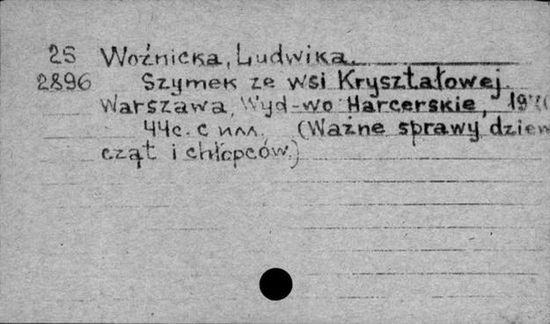 25 Woźnicka, Ludwika.
2896 Szymek ze wsi Kryształowej.
Warszawa, Wyd-wo Harcerskie,
44с. с илл. (Ważne sprawy dziew
cząt i chłopców.)